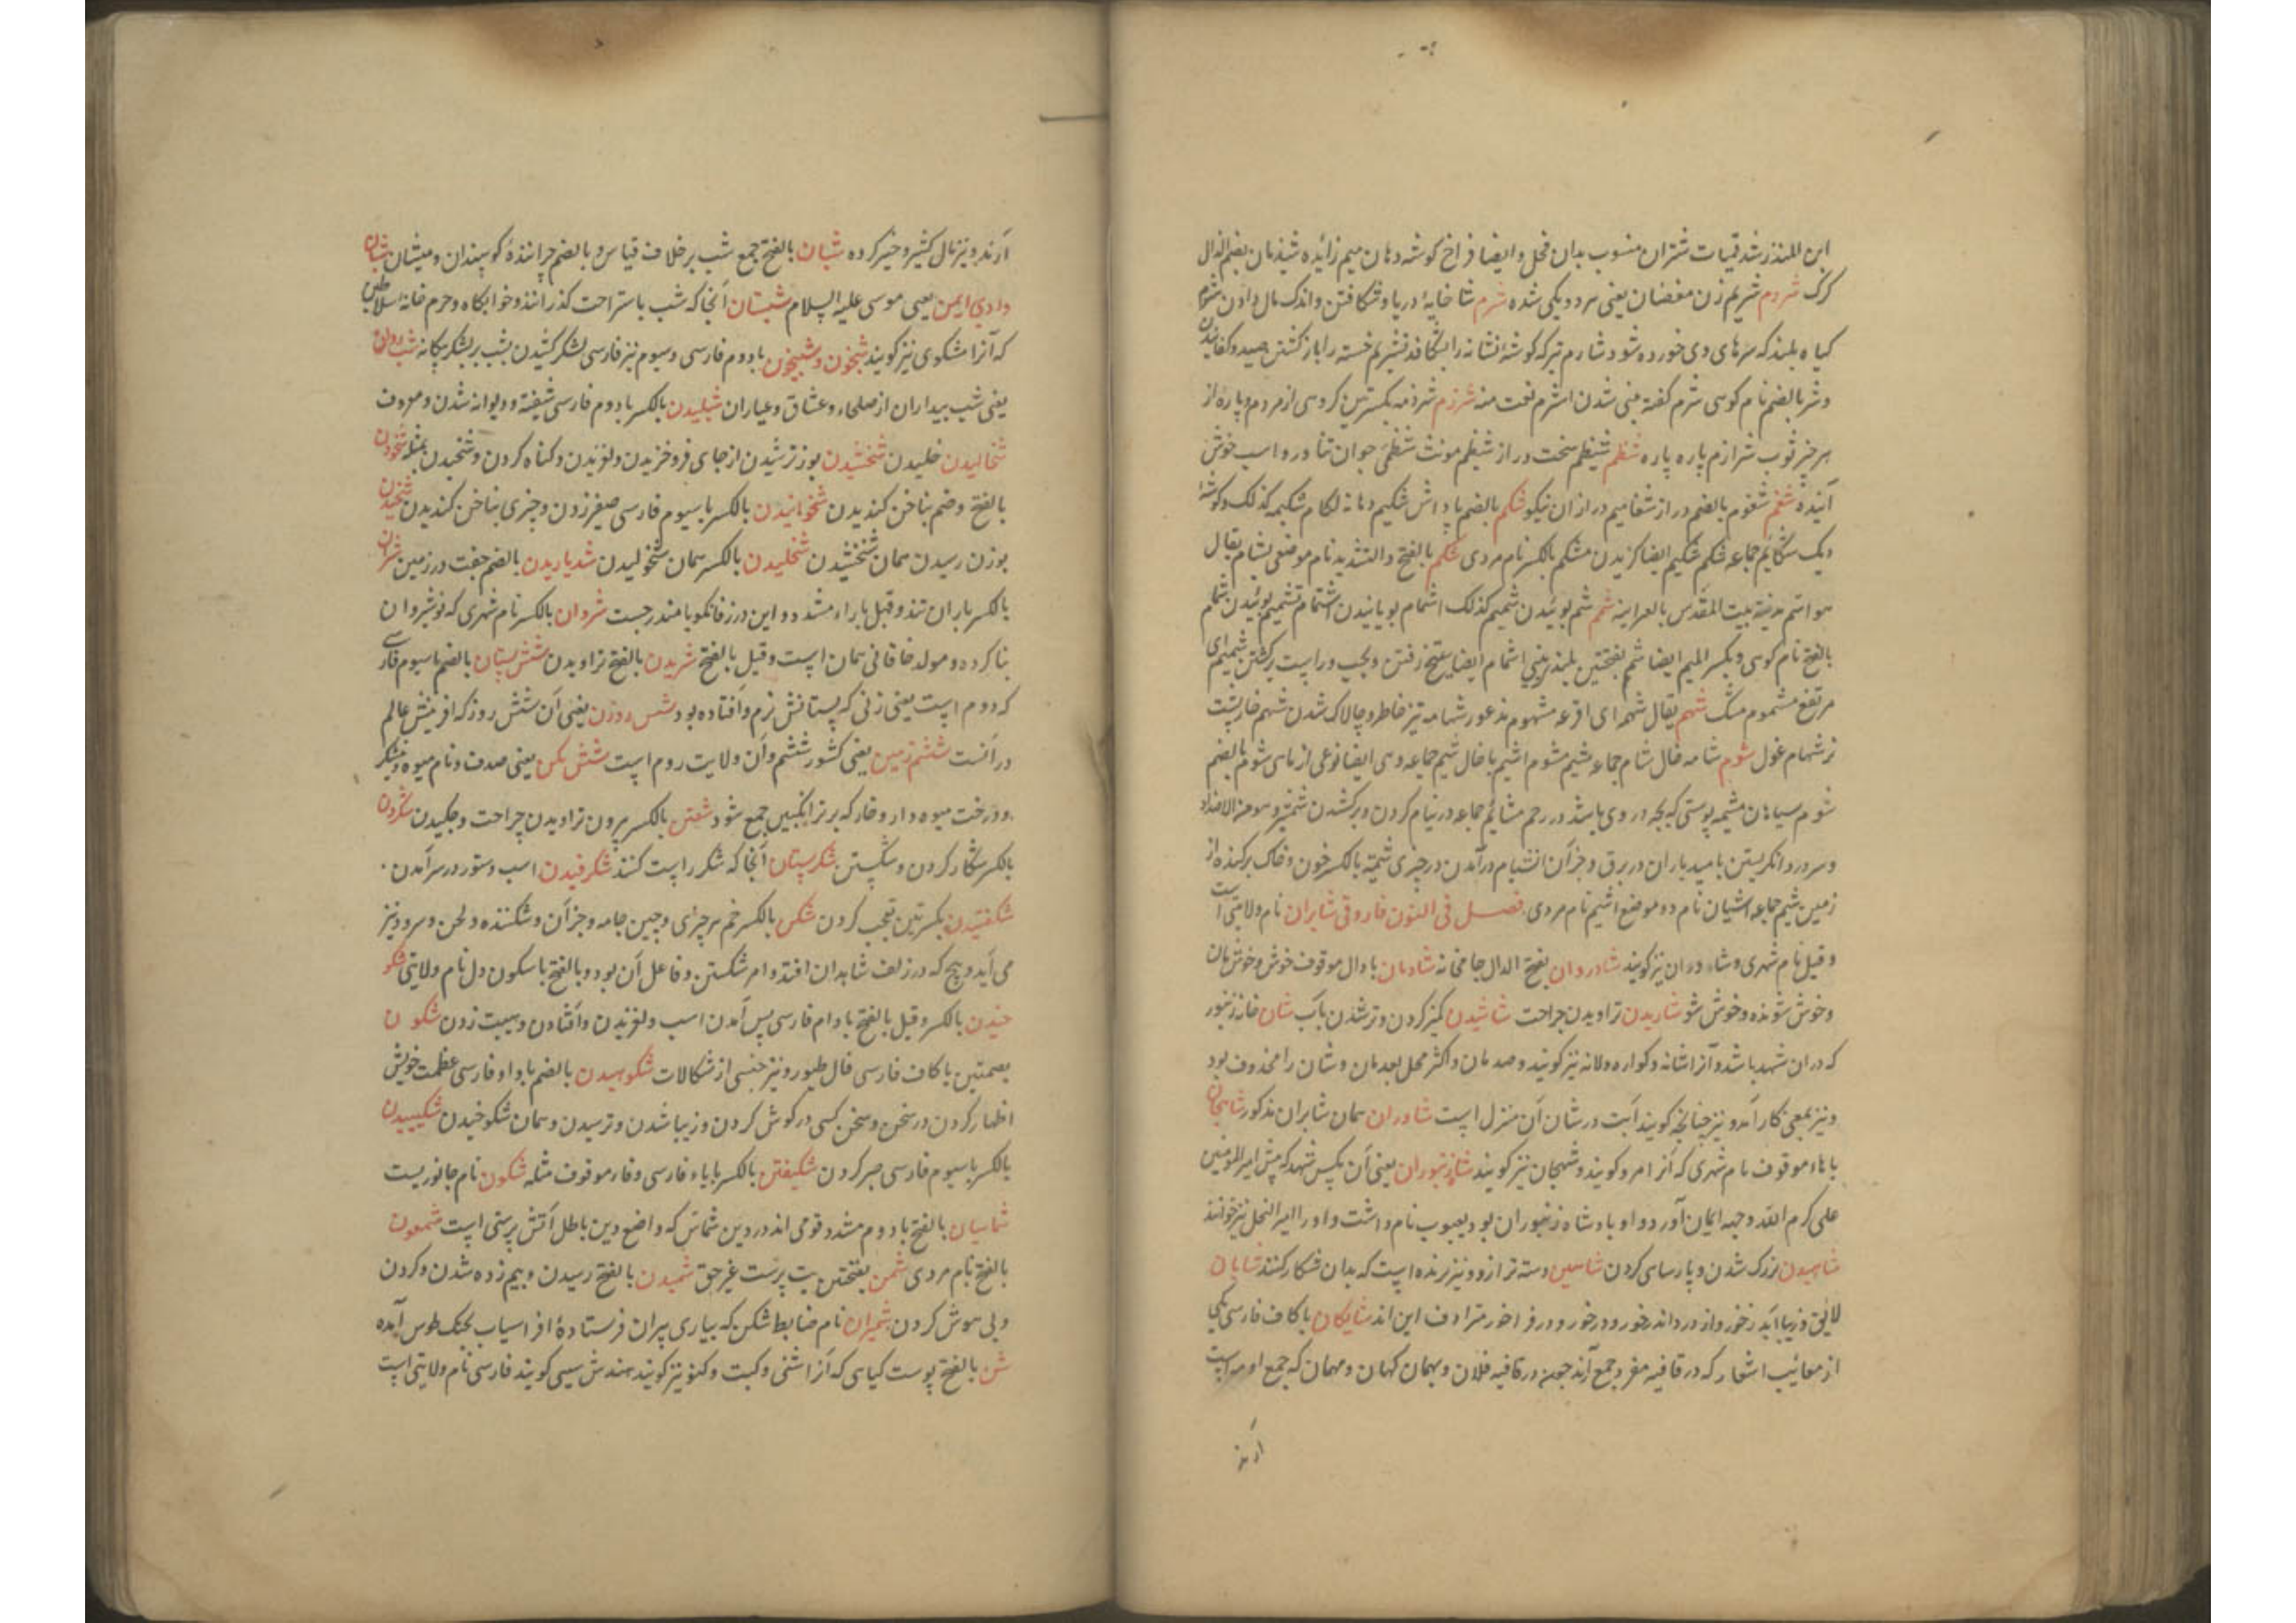 ابن المنذر شدقمیات شتران منسوب بدان فحل و ایضا فراخ گوشه دهان میم زائده شذمان بضم الذال
کرک شردم شریم زن مفضاة یعنی هر دو یکی شده شرم شاخابهٔ دریا و شکافتن و اندک مال دادن
کیاه بلند که سرهای وی خورده شود شارم تیر که گوشهٔ نشانه را بشکافد تشریم خسته را باز گشتن صید
و شر بالضم نام کوسی شرم کفته بینی شدن اشرم نعت منه شرذم شرذمه بکسرتین گروهی از مردم و پاره از
هر چیز ثوب شراذم پاره پاره شظم شیظم سخت دراز شیظم مونث شظمی جوان تناور و اسب خوش
آینده شغم شغوم بالضم دراز شغامیم درازان نیکو شکم بالضم پاداش شکیم دهانه لکام شکیمه کذلک و گوشهٔ
دیک شکایم جماعه شکم شکیم ایضا گزیدن مشکم بالکسر نام مردی شلم بالفتح و التشدید نام موضعی بشام یقال
هو اسم مدینة بیت المقدس بالعبرانیه شم شم بوئیدن شمیم کذلک اشمام بویانیدن اشتمام تشمیم بوئیدن شمام
بالفتح نام کوسی و بکسر المیم ایضا شم بفتحتین بلند بینی اشمام ایضا
مرتفع مشموم مشک شهم یقال شهمه ای افزعه مشهوم مذعور شهامه تیز خاطر و چالاک شدن شیهم خارپشت
نر شهام غول شوم شامه خال شام جماعه شیم مشوم اشیم با خال شیم جماعه وهی ایضا نوعی از ماهی شوم بالضم
شوم سیاهان مشیمه پوستی که بچه در وی باشد در رحم مشائم جماعه در نیام کردن و برکشدن شمشیر و هو من الاضداد
و سرور و انکریستن بامید باران در برق و جز آن انشیام درآمدن در چیزی شیمة بالکسر خون و خاک برکنده از
زمین شیم جماعه اشیمان نام دو موضع اشیم نام مردی فصل فی النون فاروقی شابران نام ولایتی است
و قیل نام شهری و شاوران نیز گویند شادروان بفتح الدال جامخانه شادمان با دال موقوف خوش و خوش مان
و خوش شونده و خوش شو شاریدن تراویدن جراحت شاشیدن کمیز کردن و تر شدن بآب شان خانه زنبور
که دران شهد باشد و آنرا شانه و کواره و لانه نیز گویند و صدمان و اکثر محل بعد مان و شان را محذوف بود
و نیز بمعنی کار آمد و نیز چنانچه گویند آیت در شان آن منزل است شاوران همان شابران مذکور شاهجان
با هاء موقوف نام شهری که آنرا مرو گویند و شهجان نیز گویند شاه زنبوران یعنی آن مکس شهد که پیش امیر المؤمنین
علی کرم الله وجهه ایمان آورد و او بادشاه زنبوران بود یعسوب نام داشت و او را امیر النحل نیز خوانند
شاهیدن بزرک شدن و پارسای کردن شاهین دسته ترازو و نیز پرنده است که بدان شکار کنند شایان
لائق و زیبا آید در خور و اندر خور و در خورد و در فراخور مترادف این اند شایکان با کاف فارسی یکی
از معائب اشعار که در قافیه مفرد جمع آرند چون در قافیه فلان و بهمان کهان و مهمان که جمع او مه است
آرند
آرند و نیز مال کثیر و خبر کرده شبان بالفتح جمع شب بر خلاف قیاس و بالضم چرانندهٔ گوسپندان و میشان شبان
وادی ایمن یعنی موسی علیه السلام شبستان آنجا که شب باستراحت گذرانند و خوابکاه و حرم خانهٔ سلاطین
که آنرا مشکوی نیز گویند شبخون و شبیخون با دوم فارسی و سیوم نیز فارسی لشکر کشیدن بشب بر لشکر بیکانه شب روان
یعنی شب بیداران از صلحاء و عشاق و عیاران شپلیدن بالکسر با دوم فارسی شیفته و دیوانه شدن و معروف
شخالیدن خلیدن شخشیدن بوزن ترشیدن از جای فرو خزیدن و لغزیدن و گناه کردن و شخیدن مثله شخودن
بالفتح و ضم بناخن کندیدن شخوانیدن بالکسر با سیوم فارسی صفیر زدن و چیزی بناخن کندیدن شخیدن
بوزن رسیدن همان شخشیدن شخلیدن بالکسر همان شخولیدن شدیاریدن بالضم جفت در زمین شران
بالکسر باران تند و قیل با راء مشدد و این در زفانکویا مندرجست شروان بالکسر نام شهری که نوشیروان
بنا کرده و مولد خاقانی همان است و قیل بالفتح شریدن بالفتح تراویدن شش پستان بالضم با سیوم فارسی
که دوم است یعنی زنی که پستانش نرم و افتاده بود شش روزن یعنی آن شش روز که آفرینش عالم
درانست ششم زمین یعنی کشور ششم و آن ولایت روم است شش کن یعنی صدف و نام میوه
و درخت میوه دار و خار که برترانگبین جمع شود شفتن بالکسر بیرون تراویدن جراحت و چکیدن شکردن
بالکسر شکار کردن و شکستن شکرستان آنجا که شکر راست کنند شکرفیدن اسب و ستور در سر آمدن
شکفتیدن بکسرتین تعجب کردن شکن بالکسر خم هر چیزی و چین جامه و جز آن و شکننده و لحن و سرود و نیز
می آید و پیچ که در زلف شاهدان افتد و امر شکستن و فاعل آن بود و بالفتح با سکون دل نام ولایتی شکو
خیدن بالکسر و قیل بالفتح با وام فارسی پس آمدن اسب و لغزیدن و افتادن و هیبت زدن شکون
بضمتین با کاف فارسی فال طیور و نیز جنسی از شکالات شکوهیدن بالضم با واو فارسی عظمت خویش
اظهار کردن در سخن و سخن کسی در گوش کردن و زیبا شدن و ترسیدن و همان شکوخیدن شکیبیدن
بالکسر با سیوم فارسی صبر کردن شکیفتن بالکسر با یاء فارسی و فاء موقوف مثله شکون نام جانوریست
شماسیان بالفتح با دوم مشدد قومی اند در دین شماس که واضع دین باطل آتش پرستی است شمعون
بالفتح نام مردی شمن بفتحتین بت پرست غیر حق شمیدن بالفتح رمیدن و بیم زده شدن و کردن
و بی هوش کردن شمیران نام ضابط شکن که بیاری پیران فرستادهٔ افراسیاب بجنک طوس آمده
شن بالفتح پوست گیاهی که آنرا شنی و کبت و کنو نیز گویند هندش سیی گویند فارسی نام ولایتی است